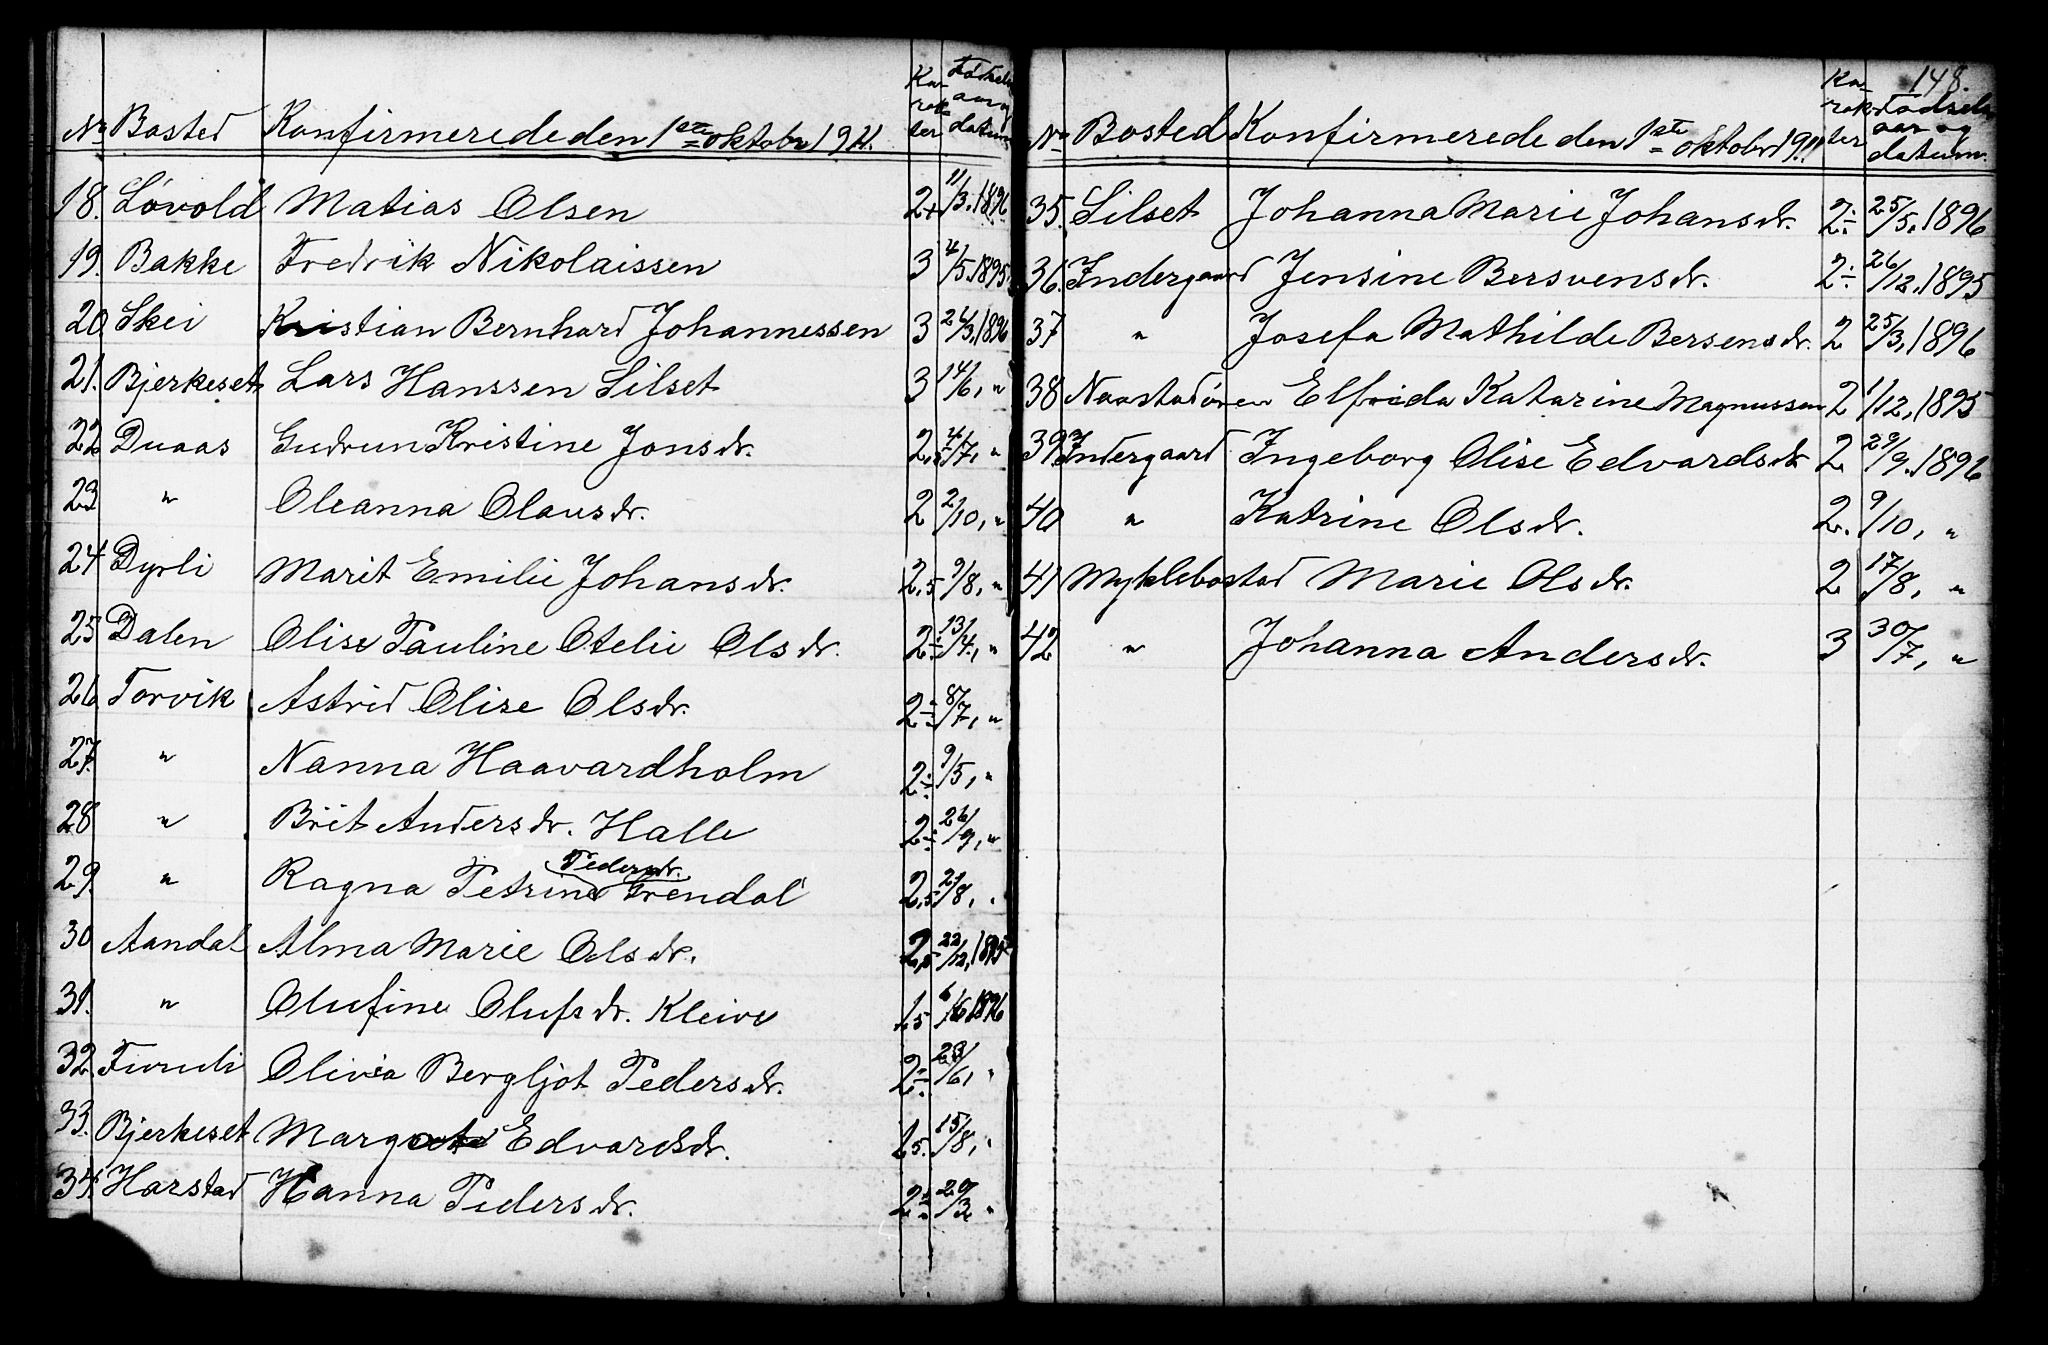 No Bosted Konfirmerede den 1ste oktobr 1911. Ka-rak-ter Fødsels aar og datum
18. Løvold Matias Olsen 2+ 11/3.1896
19. Bakke Fredrik Nikolaissen 3 4/5.1895
20 Skei Kristian Bernhard Johannessen 3 26/3.1896
21. Bjerkeset Lars Hanssen Silset 3 14/6, "
22 Duaas Gudrun Kristine Jonsdr. 2,5 4/7, "
23 " Oleanna Olausdr. 2 2/10, "
24 Dyrli Marit Emilie Johansdr. 2,5 9/8, "
25 Dalen Olise Pauline Otelie Olsdr. 2÷ 13/4, "
26 Torvik Astrid Olise Olsdr. 2÷ 8/7, "
27. " Nanna Haavardholm 2÷ 9/5, "
28 " Brit Andersdr. Halle 2÷ 26/9, "
Pedersdr.
29 " Ragna Petrine Trendal 2,5 /8, "
30 Aandal Alma Marie Olsdr. 2,5 22/12,1895
31. " Olufine Olufsdr. Kleive 1,5 6/6 1896
32 Olivia Bergljot Pedersdr. 2÷ 23/6, "
33. Bjerkeset Edvardsdr. 1,5. 15/8, "
34. Harstad Hanna Pedersdr. 2÷ 29/3 "
148.
No Bosted Konfirmerede den 1ste oktober 1911 Ka-rak-ter Fødsels aar og datum.
35. Silset Johanna Marie Johansdr. 2÷ 25/5.1896
36. Indergaard Jensine Bersvensdr. 2÷ 26/12.1895
37 " Josefa Mathilde Bersensdr. 2 25/3,1896
38 Naastadøren Elfrida Katarine Magnussen 2 1/12,1895
39 Indergaard Ingeborg Olise Edvardsdr 2 29/9.1896
40 " Katrine Olsdr. 2. 9/10, "
41 Myklebostad Marie Olsdr. 2 17/8, "
42 " Johanna Andersdr. 3 30/7, "